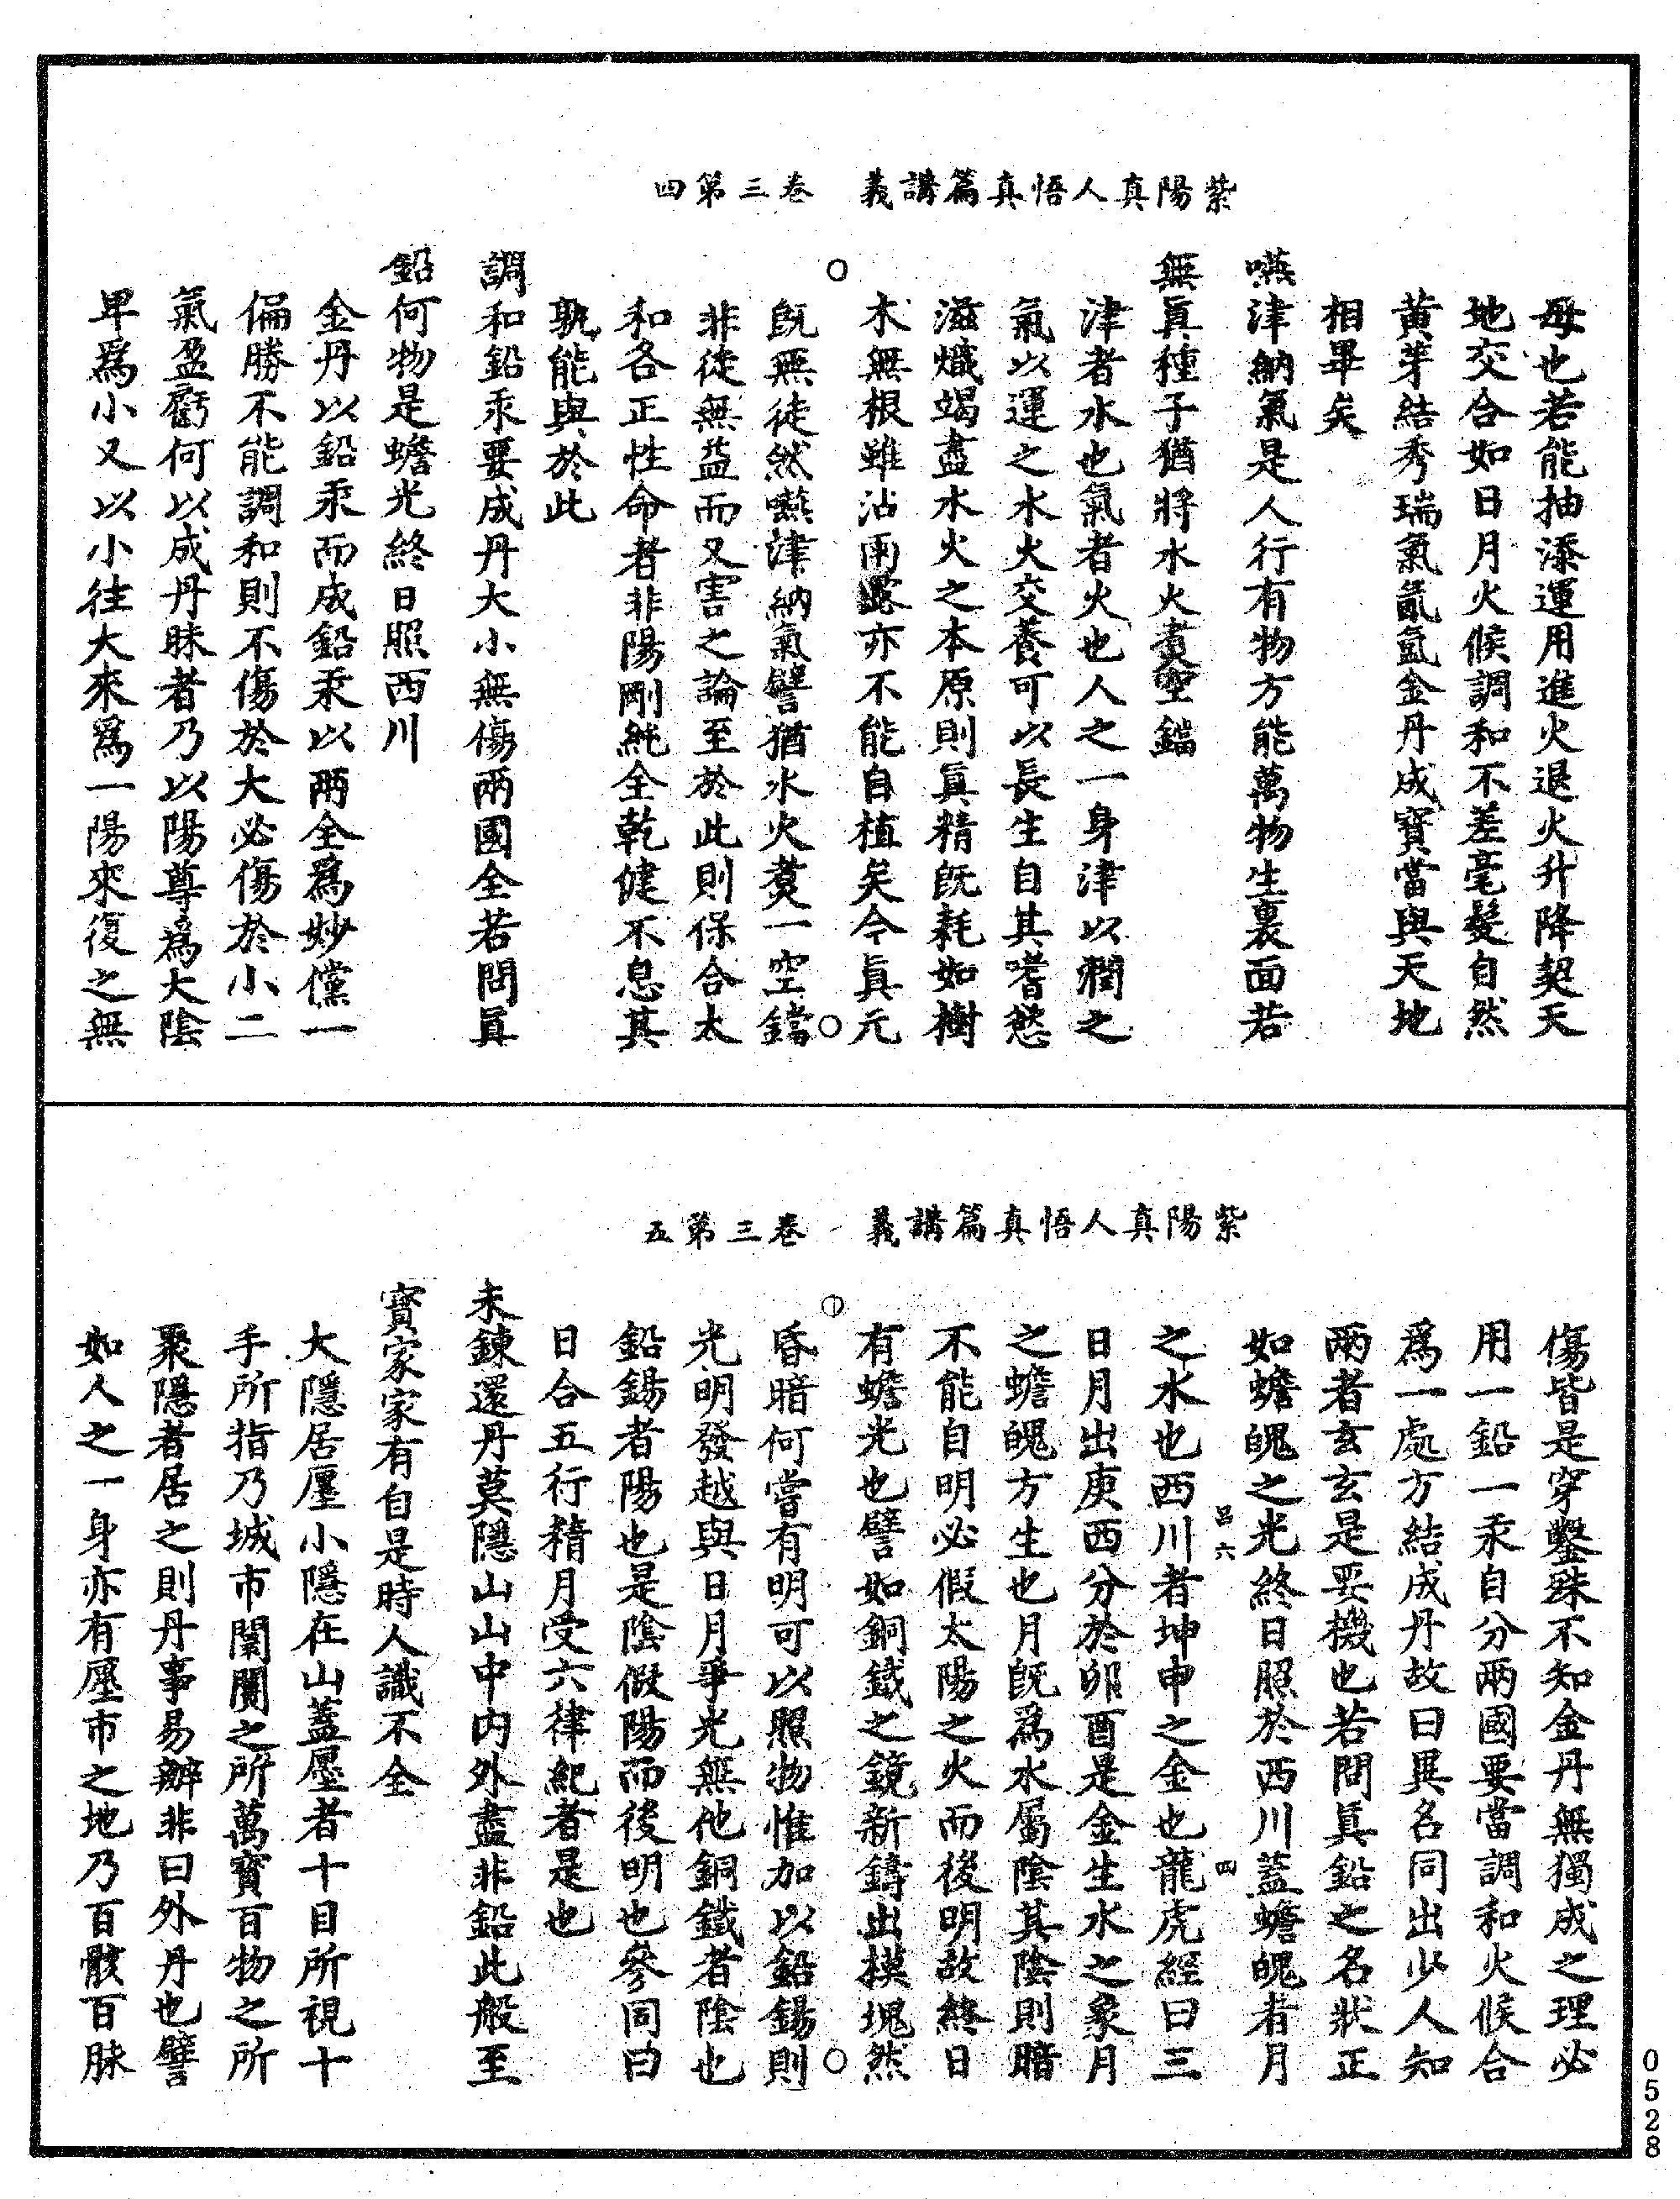 紫陽真人悟真篇講義　卷三第四
母也若能抽添運用進火退火升降契天
地交合如日月火候調和不差毫髮自然
黃芽結秀瑞氣氤氳金丹成寶當與天地
相畢矣
嚥津納氣是人行有物方能萬物生裏面若
無真種子猶將水火煑空鐺
津者水也氣者火也人之一身津以潤之
氣以運之水火交養可以長生自其嗜慾
滋熾竭盡水火之本原則真精既耗如樹
木無根雖沾雨露亦不能自植矣今真元
既無徒然嚥津納氣譬猶水火煑一空鐺
非徒無益而又害之論至於此則保合太
和各正性命者非陽剛純全乾健不息其
孰能與於此
調和鉛汞要成丹大小無傷兩國全若問真
鉛何物是蟾光終日照西川
金丹以鉛汞而成鉛汞以兩全爲妙儻一
偏勝不能調和則不傷於大必傷於小二
氣盈虧何以成丹昧者乃以陽尊爲大陰
卑爲小又以小往大來爲一陽來復之無
紫陽真人悟真篇講義　卷三第五
傷皆是穿鑿殊不知金丹無獨成之理必
用一鉛一汞自分兩國要當調和火候合
爲一處方結成丹故曰異名同出少人知
兩者玄玄是要機也若問真鉛之名狀正
如蟾魄之光終日照於西川蓋蟾魄者月
呂六　四
之水也西川者坤申之金也龍虎經曰三
日月出庚西分於卯酉是金生水之象月
之蟾魄方生也月既爲水屬陰其陰則暗
不能自明必假太陽之火而後明故終日
有蟾光也譬如銅鐵之鏡新鑄出模塊然
昏暗何嘗有明可以照物惟加以鉛錫則
光明發越與日月爭光無他銅鐵者陰也
鉛錫者陽也是陰假陽而後明也參同曰
日合五行精月受六律紀者是也
未鍊還丹莫隱山山中内外盡非鉛此般至
寶家家有自是時人識不全
大隱居廛小隱在山蓋廛者十目所視十
手所指乃城市闤闠之所萬寶百物之所
聚隱者居之則丹事易辦非曰外丹也譬
如人之一身亦有廛市之地乃百骸百脉
0528